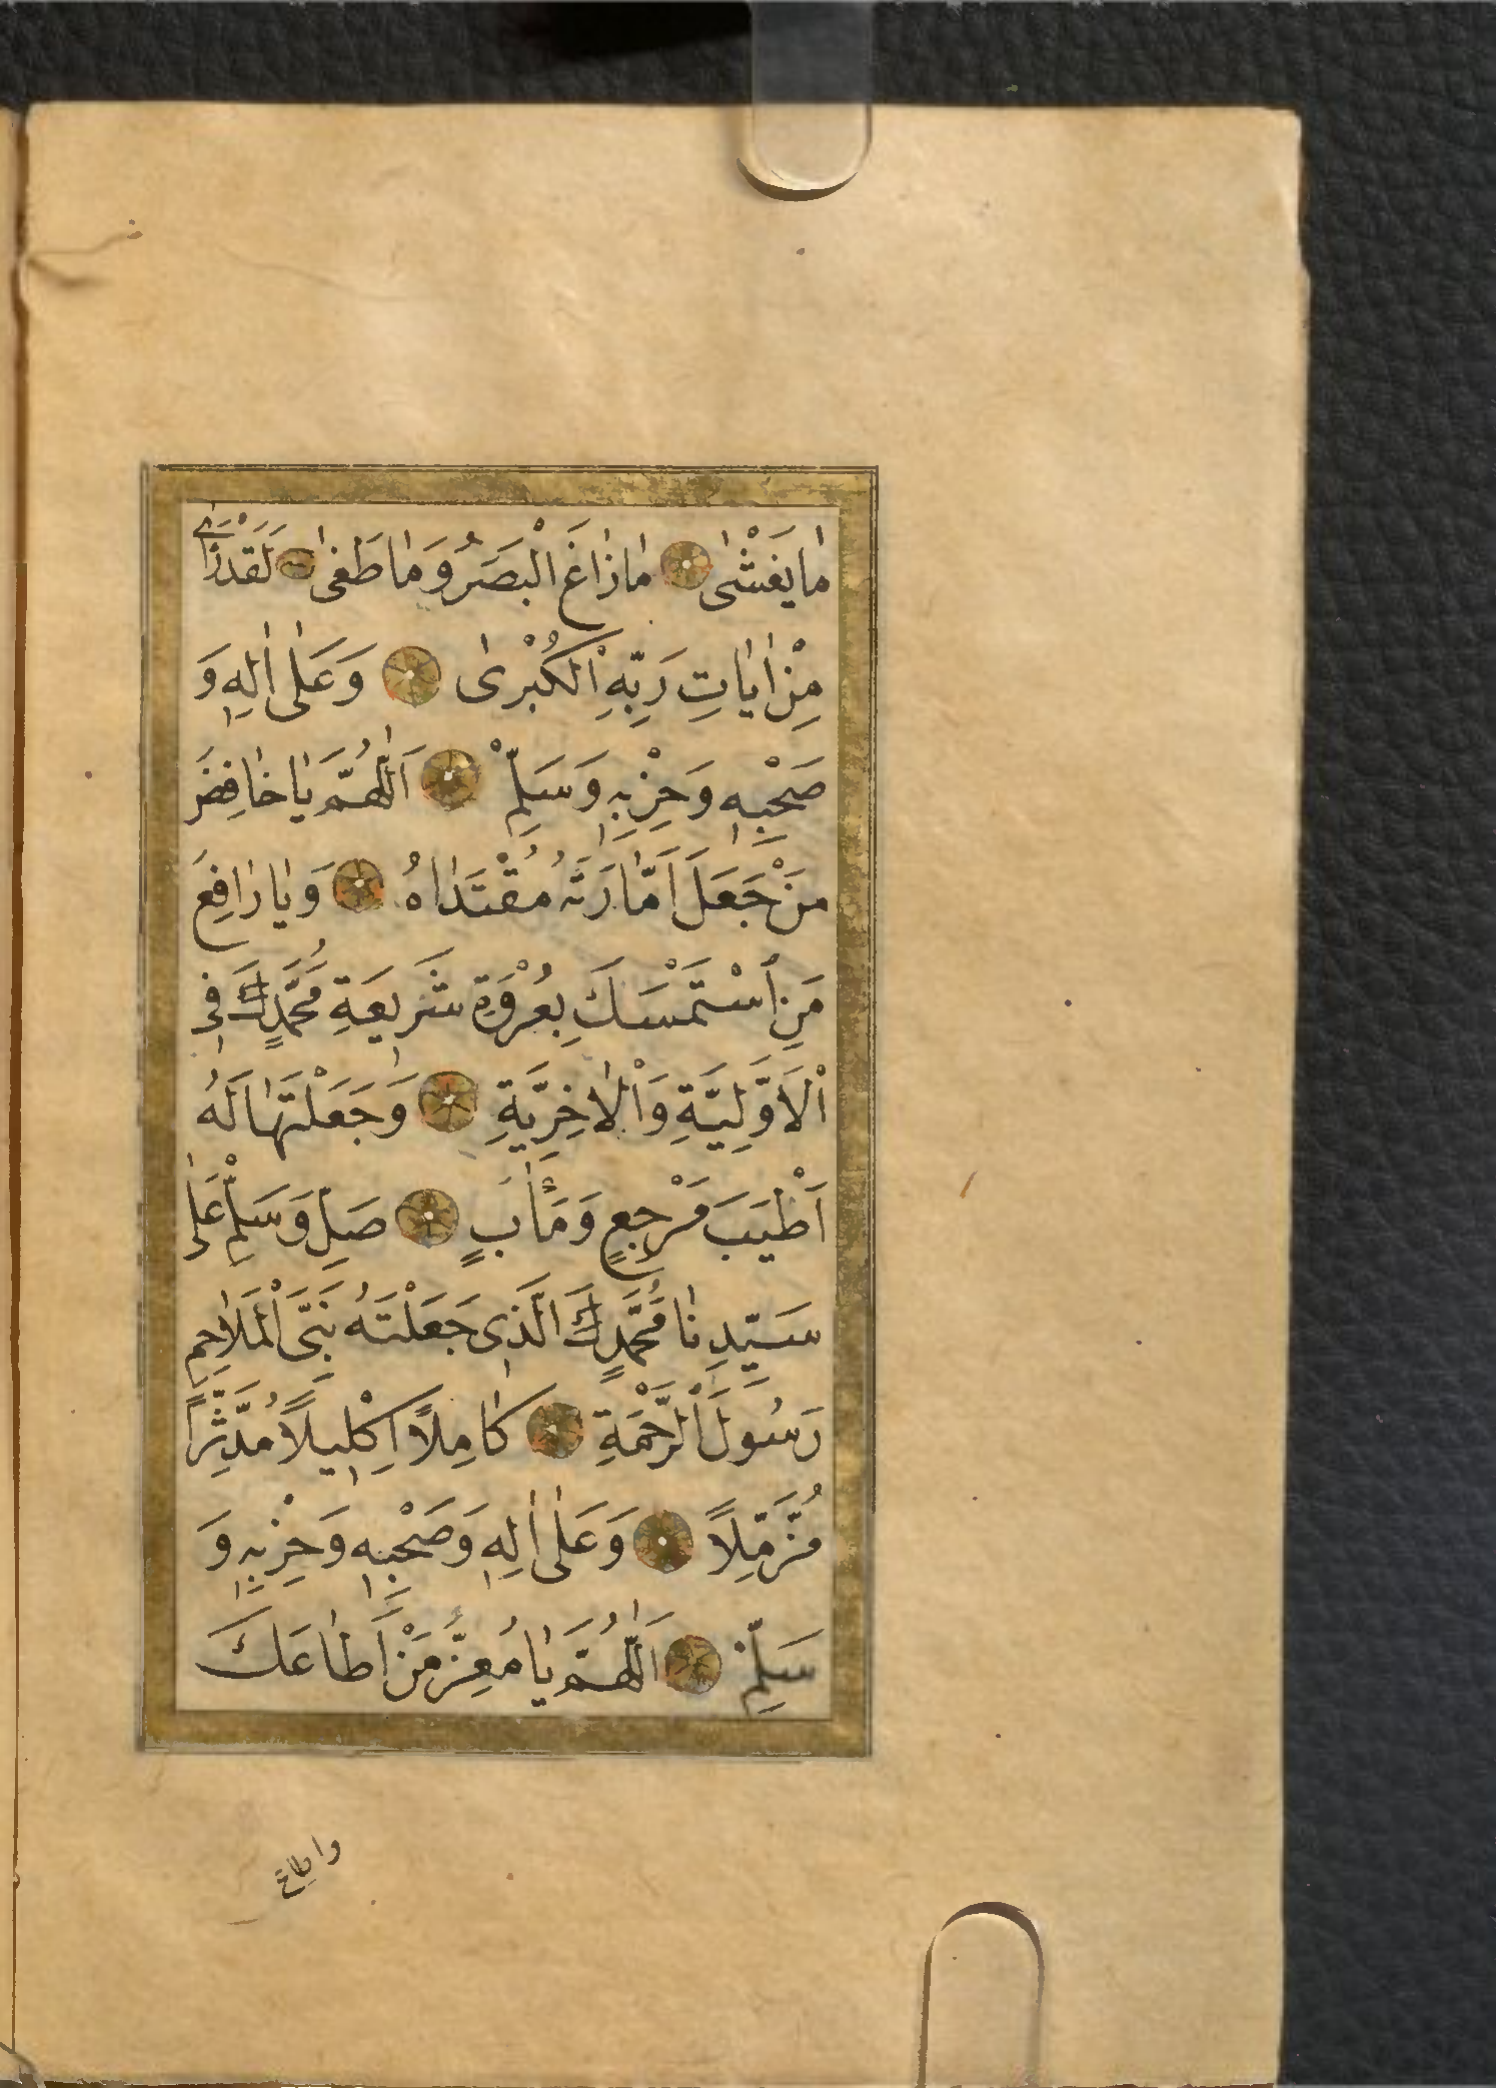 مَا يَغْشٰى مَا زَاغَ الْبَصَرُ وَمَا طَغٰى لَقَدْ رَاٰى
مِنْ اٰيَاتِ رَبِّهِ الْكُبْرٰى وَعَلٰى اٰلِهِ وَ
صَحْبِهِ وَحِزْبِهِ وَسَلِّمْ اَللّٰهُمَّ يَا خَافِضَ
مَنْ جَعَلَ اَمَّارَتَهُ مُقْتَدَاهُ وَيَا رَافِعَ
مَنِ اسْتَمْسَكَ بِعُرْوَةِ شَرِيعَةِ مُحَمَّدِكَ فِي
الْاَوَّلِيَّةِ وَالْاٰخِرِيَّةِ وَجَعَلْتَهَا لَهُ
اَطْيَبَ مَرْجِعٍ وَمَاٰبٍ صَلِّ وَسَلِّمْ عَلٰى
سَيِّدِنَا مُحَمَّدِكَ الَّذِي جَعَلْتَهُ نَبِيَّ الْمَلَاحِمِ
رَسُولَ الرَّحْمَةِ كَامِلًا اِكْلِيلًا مُدَّثِّرًا
مُزَّمِّلًا وَعَلٰى اٰلِهِ وَصَحْبِهِ وَحِزْبِهِ وَ
سَلِّمْ اَللّٰهُمَّ يَا مُعِزَّ مَنْ اَطَاعَكَ